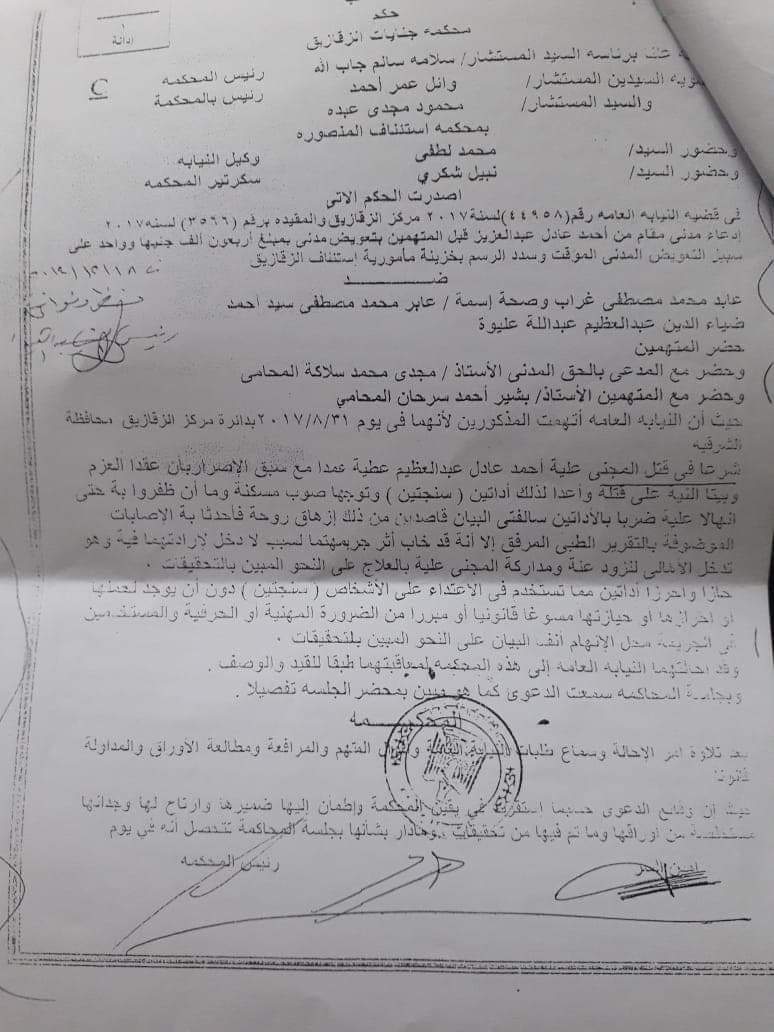 ١
ادانة
حكم
محكمة جنايات الزقازيق
برئاسه السيد المستشار/ سلامه سالم جاب الله رئيس المحكمه
السيدين المستشار/ وائل عمر أحمد رئيس بالمحكمة
والسيد المستشار/ محمود مجدى عبده
بمحكمه استئناف المنصوره
وحضور السيد/ محمد لطفى وكيل النيابه
وحضور السيد/ نبيل شكري سكرتير المحكمه
اصدرت الحكم الاتى
فى قضيه النيابه العامه رقم(٤٤٩٥٨)لسنة٢٠١٧ مركز الزقازيق والمقيده برقم (٣٥٦٦) لسنه٢٠١٧
إدعاء مدنى مقام من أحمد عادل عبدالعزيز قبل المتهمين بتعويض مدنى بمبلغ أربعون ألف جنيها وواحد على
سبيل التعويض المدنى الموقت وسدد الرسم بخزينة مأمورية إستئناف الزقازيق
ضـــــــد
عابد محمد مصطفى غراب وصحة إسمة / عابر محمد مصطفى سيد أحمد
ضياء الدين عبدالعظيم عبداللة عليوة
حضر المتهمين
وحضر مع المدعى بالحق المدنى الأستاذ / مجدى محمد سلاكة المحامى
وحضر مع المتهمين الأستاذ/ بشير أحمد سرحان المحامي
حيث أن النيابه العامه أتهمت المذكورين لأنهما فى يوم ٢٠١٧/٨/٣١ بدائرة مركز الزقازيق محافظة
الشرقيه
شرعا فى قتل المجنى علية أحمد عادل عبدالعظيم عطية عمدا مع سبق الإصراربأن عقدا العزم
وبيتا النية على قتلة وأعدا لذلك أداتين ( سنجتين ) وتوجها صوب مسكنة وما أن ظفروا بة حتى
انهالا علية ضربا بالأداتين سالفتى البيان قاصدين من ذلك إزهاق روحة فأحدثا بة الإصابات
الموصوفة بالتقرير الطبى المرفق إلا أنة قد خاب أثر جريمتهما لسبب لا دخل لإرادتهما فية وهو
تدخل الأهالى للزود عنة ومداركة المجنى علية بالعلاج على النحو المبين بالتحقيقات .
حازا واحرزا أداتين مما تستخدم فى الأعتداء على الأشخاص ( سنجتين ) دون أن يوجد لحملها
او احرازها او حيازتها مسوغا قانونيا أو مبررا من الضرورة المهنية أو الحرفية والمستخدمين
فى الجريمة محل الإتهام أنف البيان على النحو المبين بلتحقيقات .
وقد احالتهما النيابه العامه إلى هذه المحكمه لمعاقبتهما طبقا للقيد والوصف .
وبجلسة المحاكمه سمعت الدعوى كما هو مبين بمحضر الجلسه تفصيلا .
المحكـــــمه
بعد تلاوة امر الإحالة وسماع طلبات النيابه وأقوال المتهم والمرافعة ومطالعة الأوراق والمداولة
قانونا
حيث أن وقائع الدعوى حسبما استقرت في يقين المحكمة وإطمأن إليها ضميرها وارتاح لها وجدانها
مستخلصة من أوراقها وما تم فيها من تحقيقات ومادار بشأنها بجلسة المحاكمة تتحصل أنه في يوم
أمين السر رئيس المحكمه